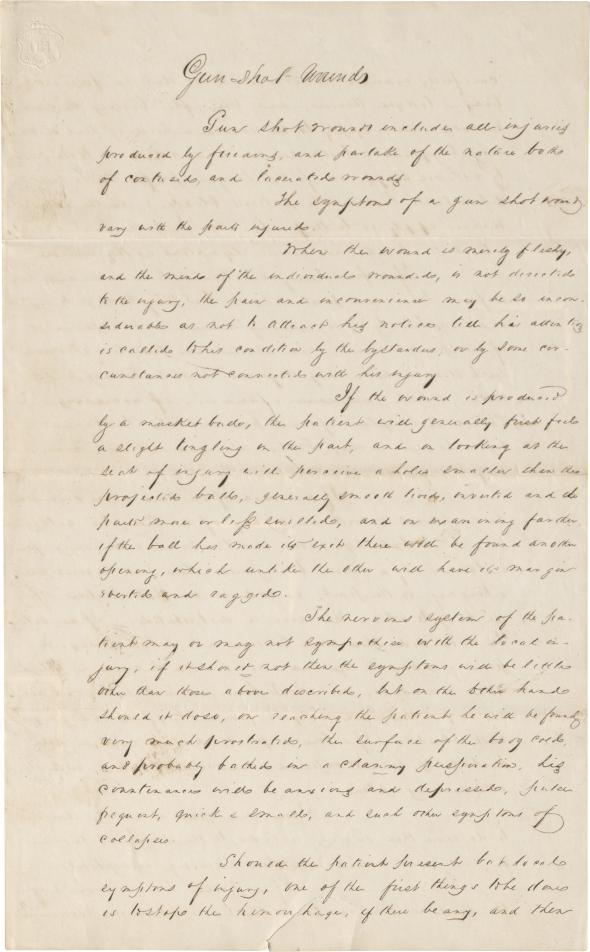 Gun-shot wounds
Gun shot wounds includes all injuries
produced by firearms, and partake of the nature both
of contused, and lacerated wounds
The symptoms of a gun shot wound
vary with the parts injured.
When the wound is merely fleshy,
and the mind of the individual wounded, is not directed
to the injury, the pain and inconvenience may be so incon-
siderable as not to attract his notice till his attention
is called to his condition by the bystanders, or by some cir-
cumstances not connected with his injury
If the wound is produced
by a musket ball, the patient will generally first feel
a slight tingling in the part, and on looking at the
seat of injury will perceive a hole smaller than the
projectile ball, generally smooth lined, inverted and the
parts more or less swelled, and on examining farther
if the ball has made its exit there will be found another
opening, which unlike the other will have its margin
everted and ragged.
The nervous system of the pa-
tient may or may not sympathise with the local in-
jury, if it should not then the symptoms will be little
over than those above described, but on the other hand
should it do so, on reaching the patient he will be found
very much prostrated, the surface of the body cold,
and probably bathed in a clammy perspiration, his
countenance will be anxious and depressed, pulse
frequent, quick & small, and such other symptoms of
collapse.
Should the patient present but local
symptoms of injury, one of the first things to be done
is to stop the hemorrhage, if there be any, and then